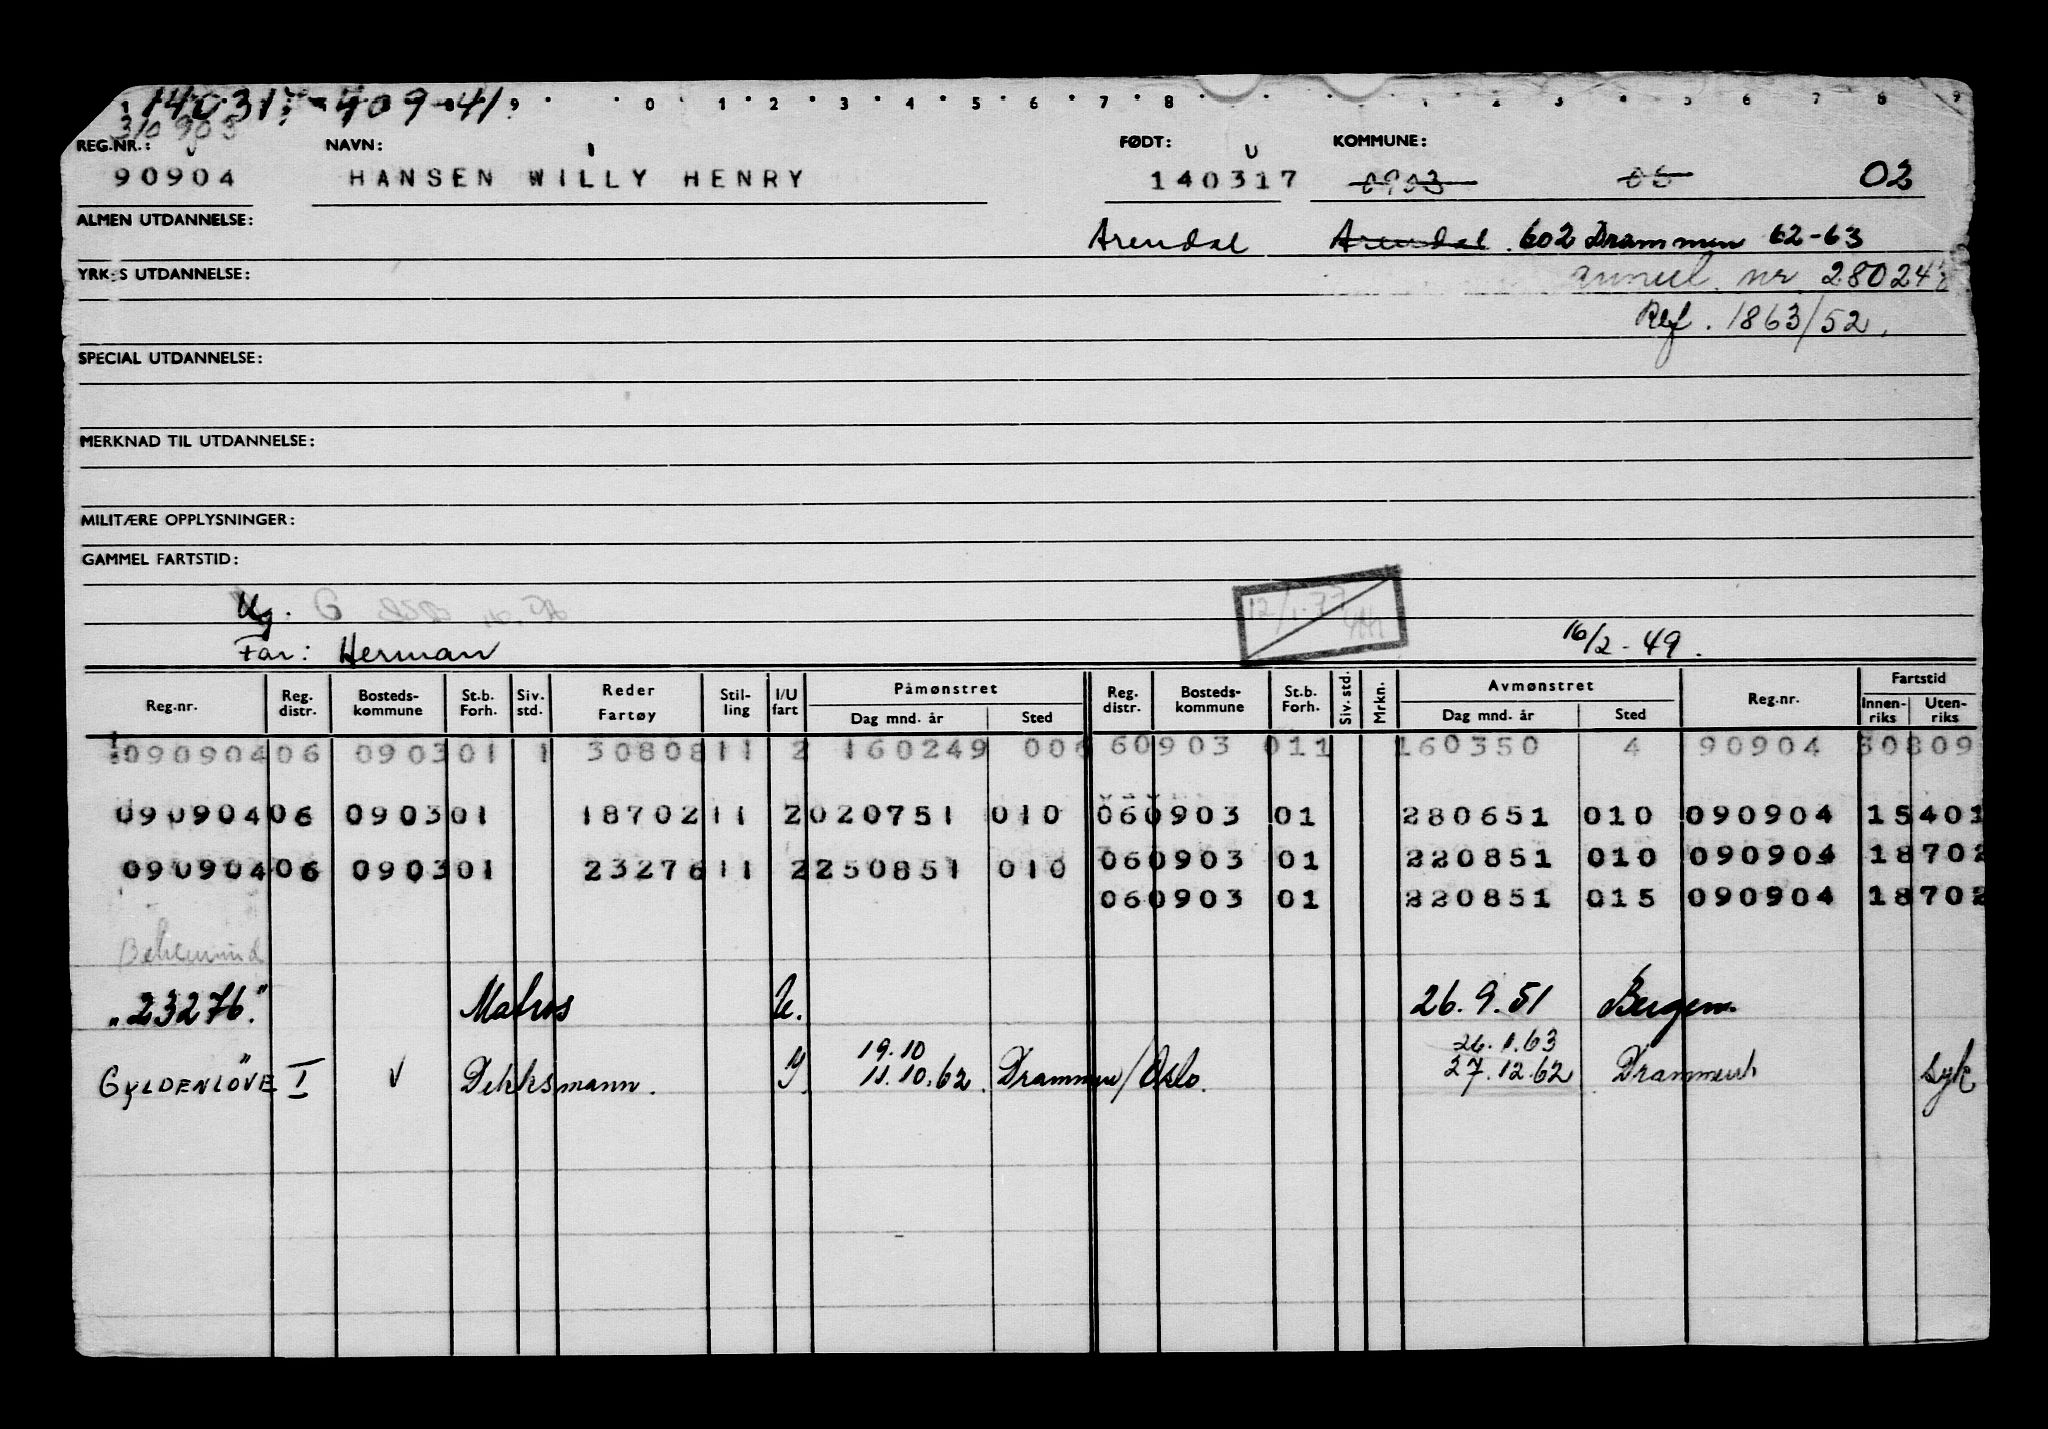 140317-409-41
310903
REG.NR.: NAVN: FØDT: KOMMUNE:
90904 HANSEN WILLY HENRY 140317 0903 06 02
ALMEN UTDANNELSE: Arendal Arendal. 602 Drammen 62-63
YRKES UTDANNELSE: nr. 28024
Ref. 1863/52.
SPECIAL UTDANNELSE:
MERKNAD TIL UTDANNELSE:
MILITÆRE OPPLYSNINGER:
GAMMEL FARTSTID:
Ug. G
12/1.77
Far: Herman 16/2-49.
Reg.nr. Reg. distr. Bosteds-kommune St.b. Forh. Siv. std. Reder Fartøy Stil-ling I/U fart Påmønstret Dag mnd. år Sted Reg. distr. Bosteds-kommune St.b. Forh. Siv. std. Mrkn. Avmønstret Dag mnd. år Sted Reg.nr. Fartstid Innen-riks Uten-riks
090904 06 0903 01 1 30808 11 2 160249 006 60903 011 160350 4 90904 30809
090904 06 0903 01 18702 11 2 020751 010 060903 01 280651 010 090904 15401
090904 06 0903 01 23276 11 2 250851 010 060903 01 220851 010 090904 18702
060903 01 220851 015 090904 18702
„23276" Matros U. 26.9.51 Bergen
19.10 26.1.63
GYLDENLÖVE I V Dekksmann. 11.10.62. Drammen/Oslo. 27.12.62 Drammen syk